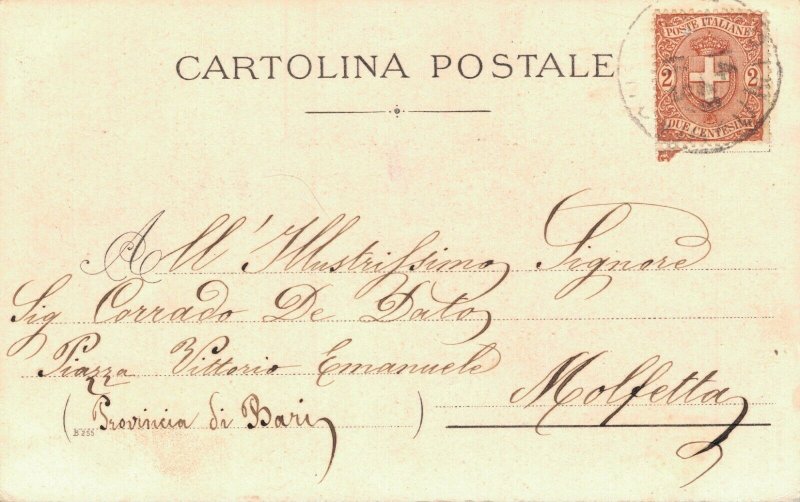 POSTE ITALIANE
2 2
DUE CENTESIMI
CARTOLINA POSTALE
All' Illustrissimo Signore
Sig Corrado De Dato
Piazza Vittorio Emanuele
Molfetta
(Provincia di Bari)